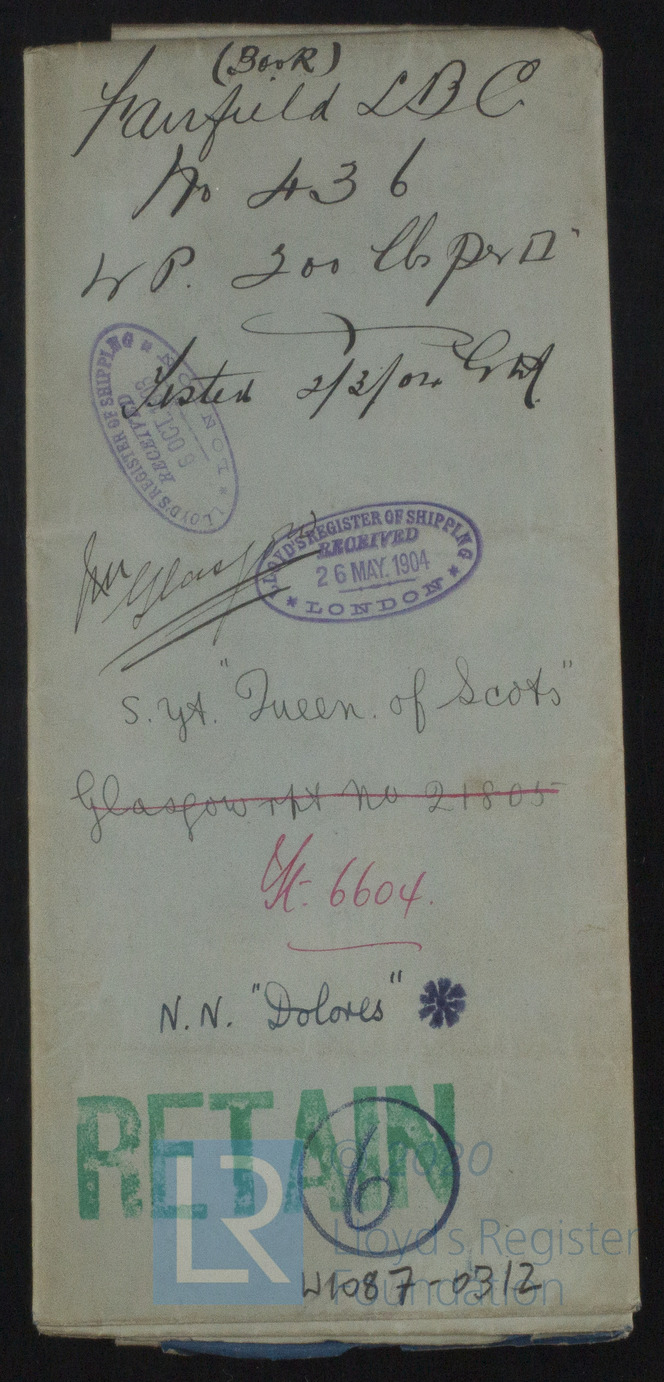 (Book)
Fairfield LBC
No 436
W P. 200 lbs per □"
Tested 2/3/04
LLOYD'S REGISTER OF SHIPPING
RECEIVED
6 OCT
LONDON
Glasgow
LLOYD'S REGISTER OF SHIPPING
RECEIVED
26 MAY. 1904
LONDON
S. Yt. "Queen. of Scots"
Glasgow rpt No 21805
6604.
N.N. "Dolores"
RETAIN
6
© 2020
LR
Lloyd's Register
Foundation
W1087-0312